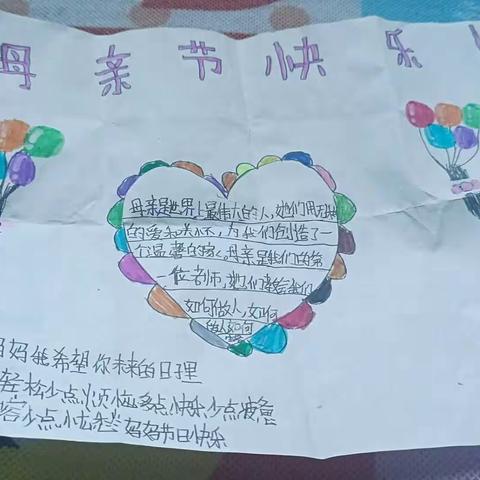 母亲节快乐
母亲是世界上最伟大的人,她们用无私
的爱和关怀,为我们创造了一
个温馨的家。母亲是我们的第
一位老师,她们教会我们
如何做人,如何
妈妈我希望你未来的日子里
轻松少点烦恼多点快乐少点疲惫
容少点忧愁妈妈节日快乐